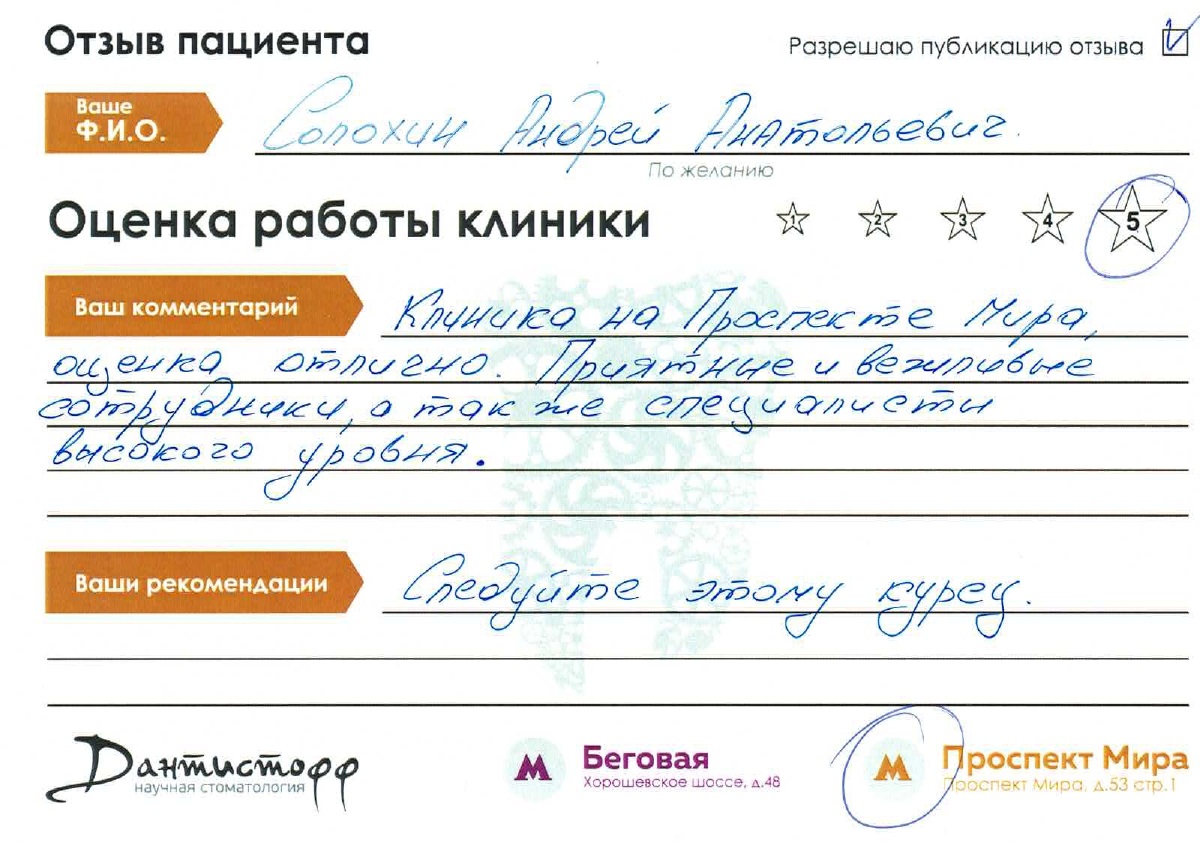 Отзыв пациента
Разрешаю публикацию отзыва
Ваше Ф.И.О.
Солохин Андрей Анатольевич.
По желанию
Оценка работы клиники
1 2 3 4 5
Ваш комментарий
Клиника на Проспекте Мира,
оценка отлично. Приятные и вежливые
сотрудники, а так же специалисты
высокого уровня.
Ваши рекомендации
Следуйте этому курсу.
Дантистофф
научная стоматология
Беговая
Хорошевское шоссе, д.48
Проспект Мира
Проспект Мира, д.53 стр.1